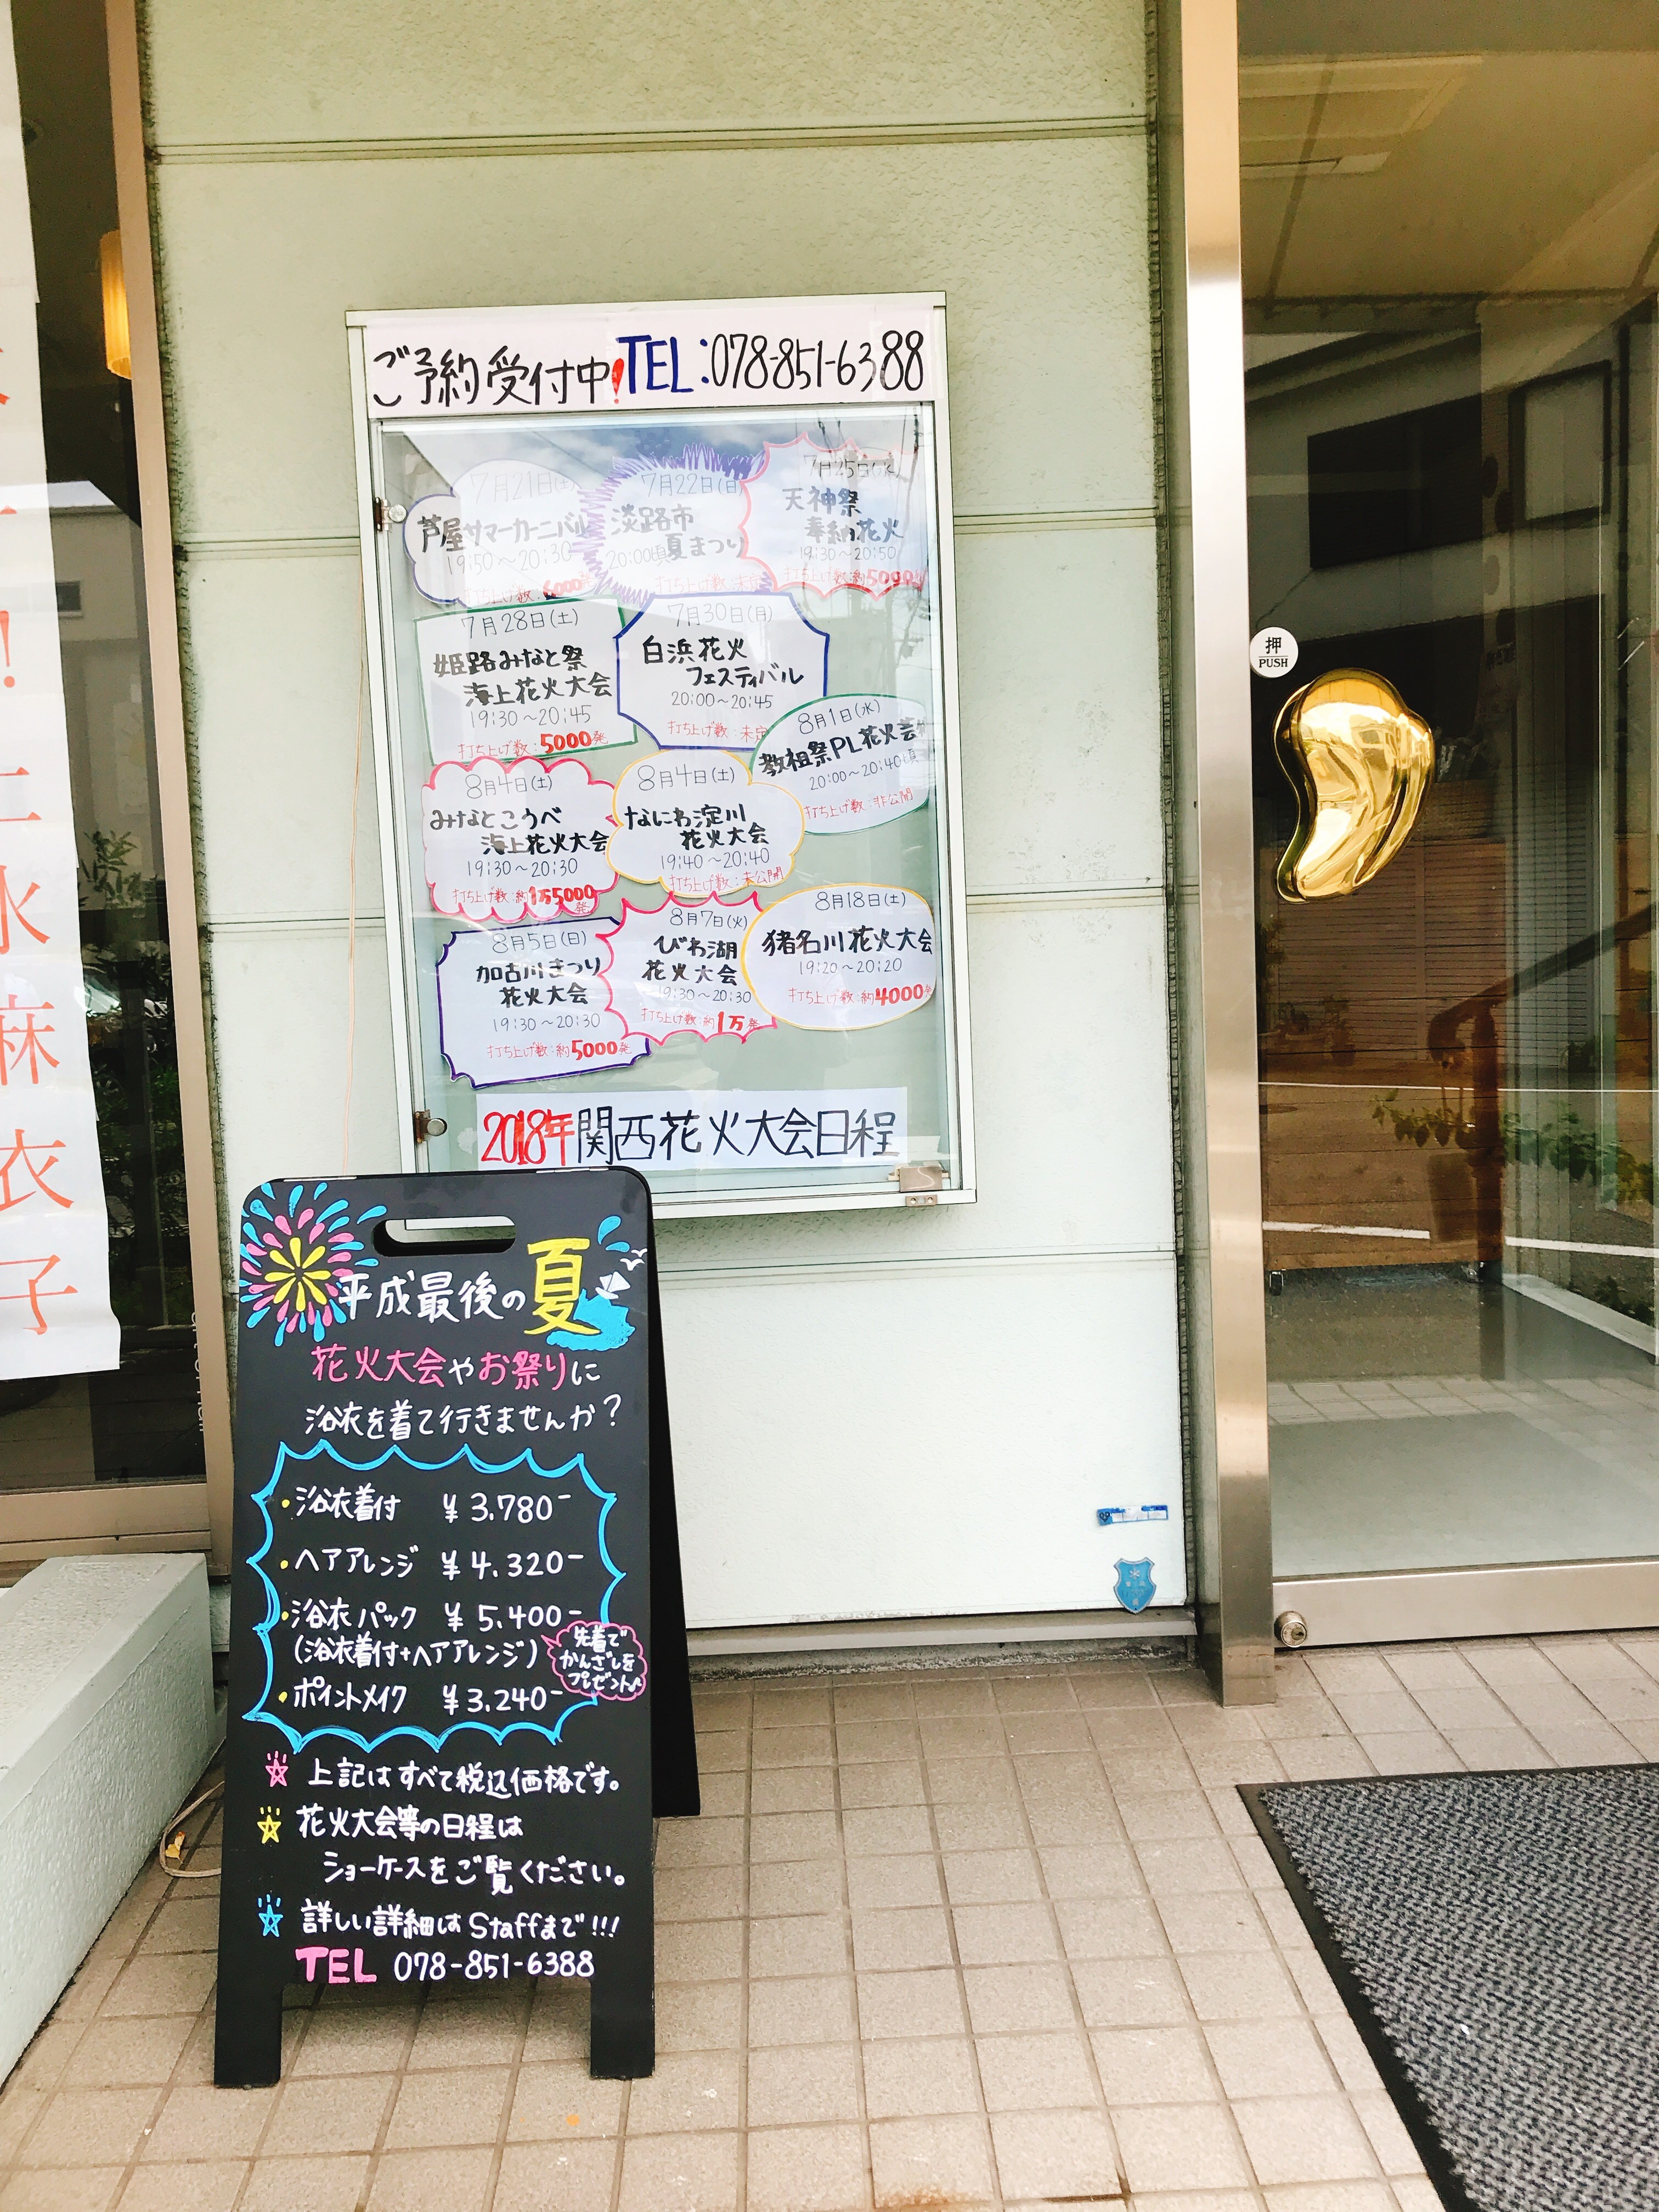 ご予約受付中!TEL:078-851-6388
7月21日(土)
芦屋サマーカーニバル
19:50～20:30
打ち上げ数:6000発
7月22日(日)
淡路市
夏まつり
20:00頃
打ち上げ数:未定
7月25日(水)
天神祭
奉納花火
19:30～20:50
打ち上げ数:約5000発
7月28日(土)
姫路みなと祭
海上花火大会
19:30～20:45
打ち上げ数:5000発
7月30日(月)
白浜花火
フェスティバル
20:00～20:45
打ち上げ数:未定
8月1日(水)
教祖祭PL花火芸術
20:00～20:40頃
打ち上げ数:非公開
8月4日(土)
みなとこうべ
海上花火大会
19:30～20:30
打ち上げ数:約1万5000発
8月4日(土)
なにわ淀川
花火大会
19:40～20:40
打ち上げ数:未公開
8月5日(日)
加古川まつり
花火大会
19:30～20:30
打ち上げ数:約5000発
8月7日(火)
びわ湖
花火大会
19:30～20:30
打ち上げ数:約1万発
8月18日(土)
猪名川花火大会
19:20～20:20
打ち上げ数:約4000発
2018年関西花火大会日程
平成最後の夏
花火大会やお祭りに
浴衣を着て行きませんか?
・浴衣着付 ¥3.780-
・ヘアアレンジ ¥4.320-
・浴衣パック ¥5.400-
(浴衣着付+ヘアアレンジ)
先着で
かんざしを
プレゼント♪
・ポイントメイク ¥3.240-
☆ 上記はすべて税込価格です。
☆ 花火大会等の日程は
ショーケースをご覧ください。
☆ 詳しい詳細はStaffまで!!!
TEL 078-851-6388
押
PUSH
水麻衣子